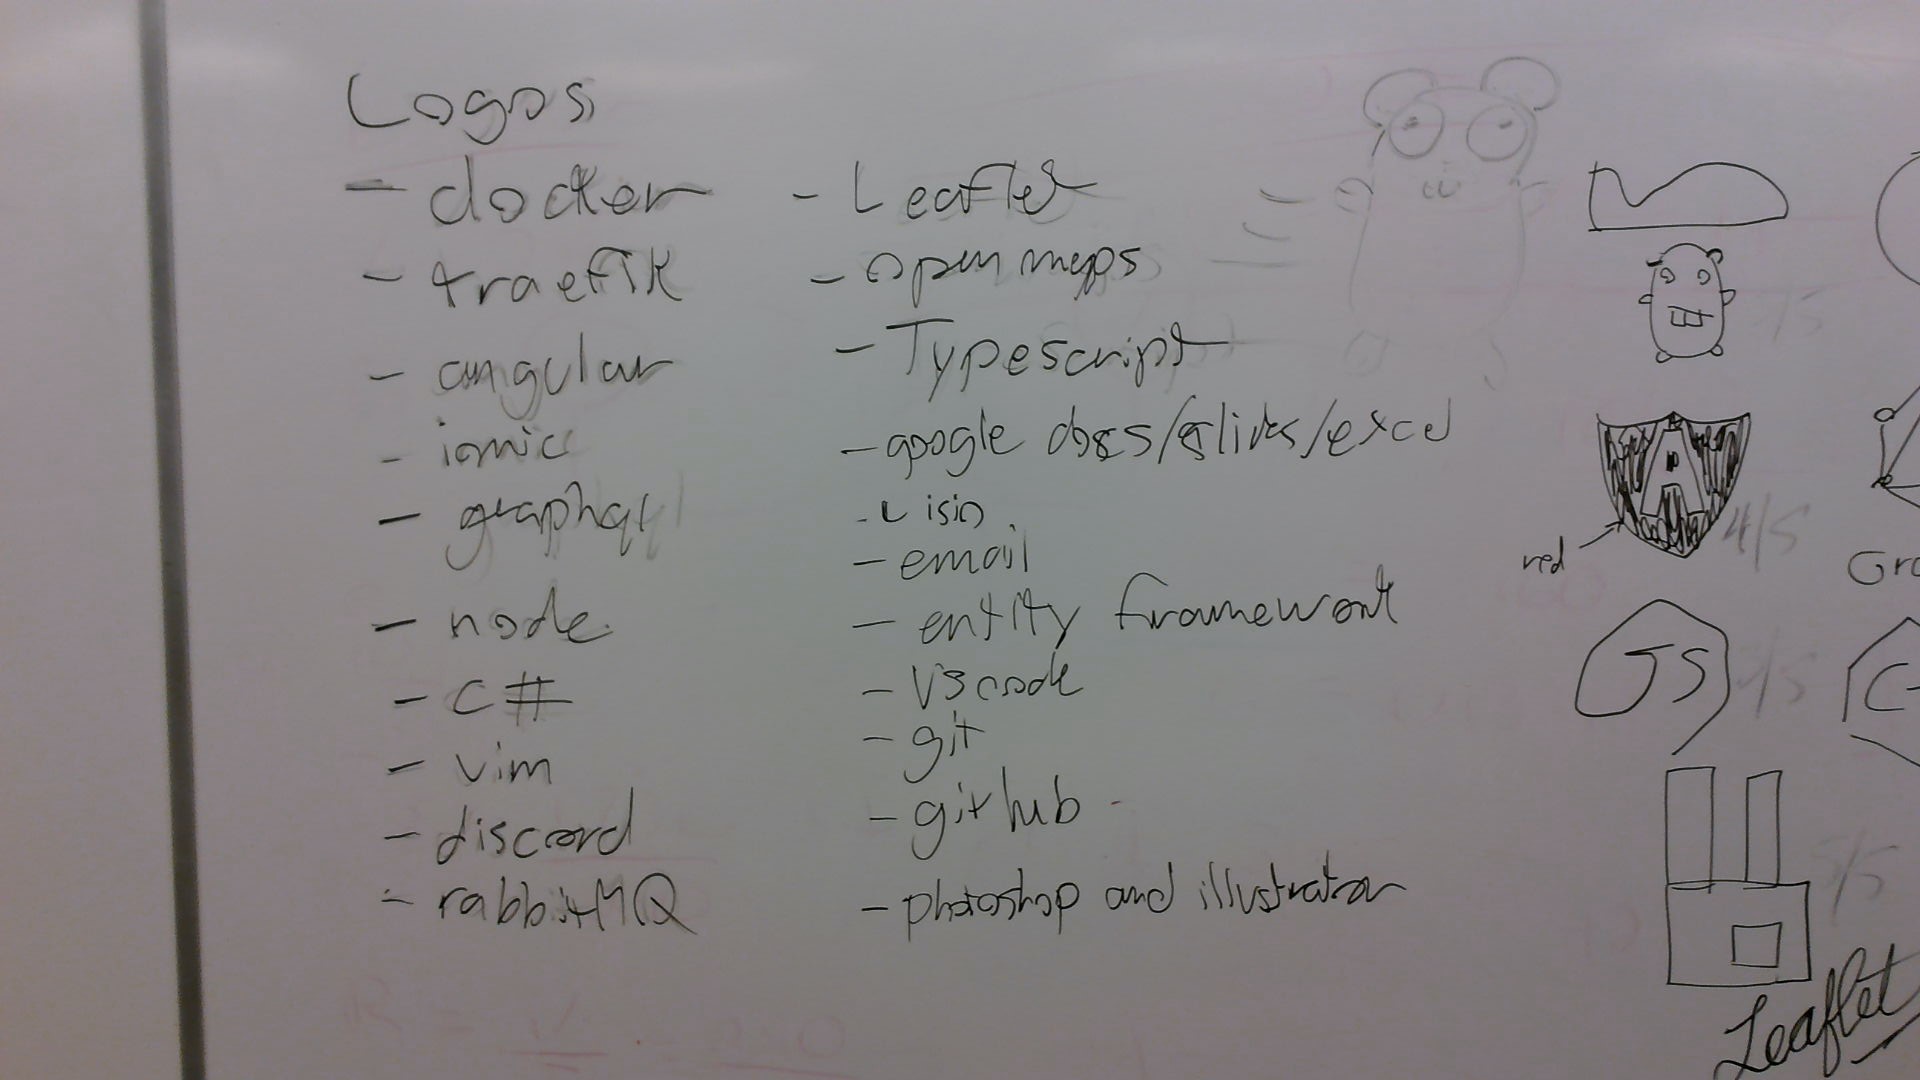 Logos
- docker
- traefik
- angular
- ionic
- graphql
- node
- C#
- vim
- discord
- rabbitMQ
- Leaflet
- open maps
- Typescript
- google docs/slides/excel
- visio
- email
- entity framework
- VS code
- git
- github
- photoshop and illustrator
red
4/5
Gra
JS
/5
C
5/5
Leaflet